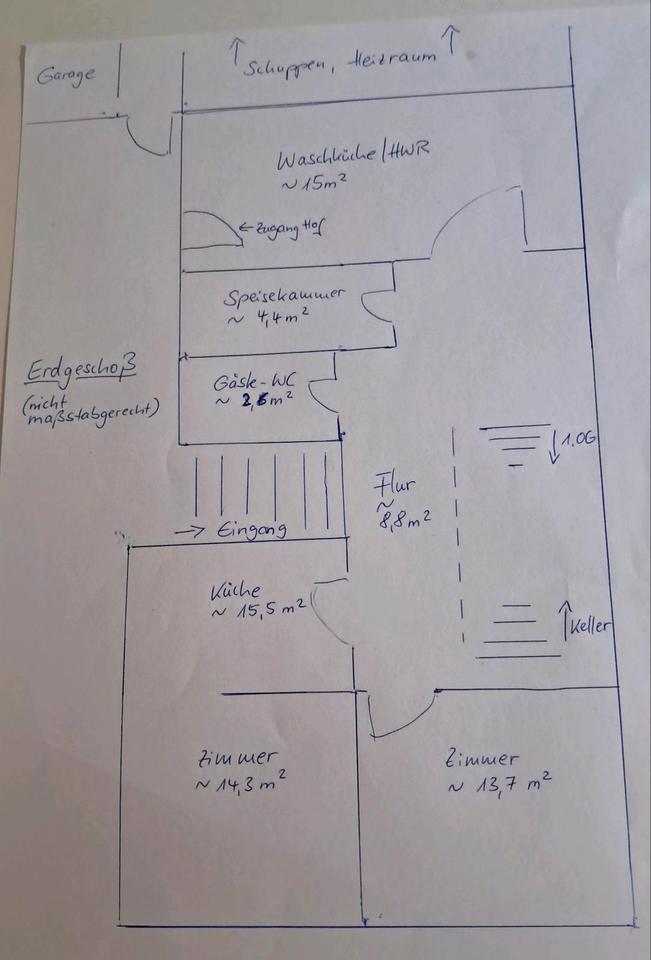 Garage
Schuppen, Heizraum
Waschküche/HWR
~ 15m²
← Zugang Hof
Speisekammer
~ 4,4m²
Erdgeschoß
(nicht
maßstabgerecht)
Gäste-WC
~ m²
1.OG
Flur
~
8,8m²
→ Eingang
Küche
~ 15,5m²
Keller
Zimmer
~ 14,3m²
Zimmer
~ 13,7 m²